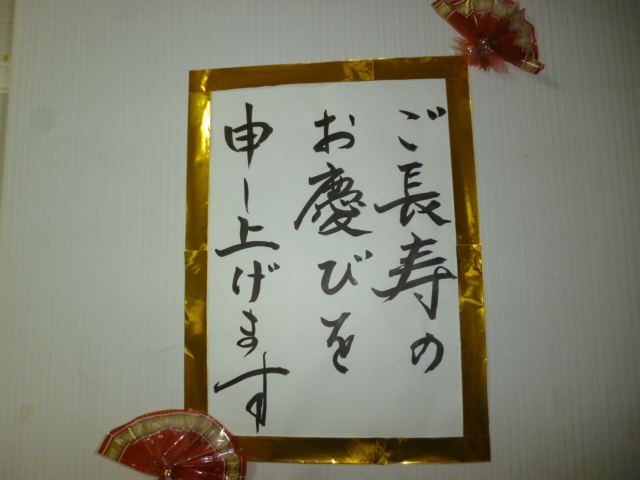 ご長寿の
お慶びを
申し上げます